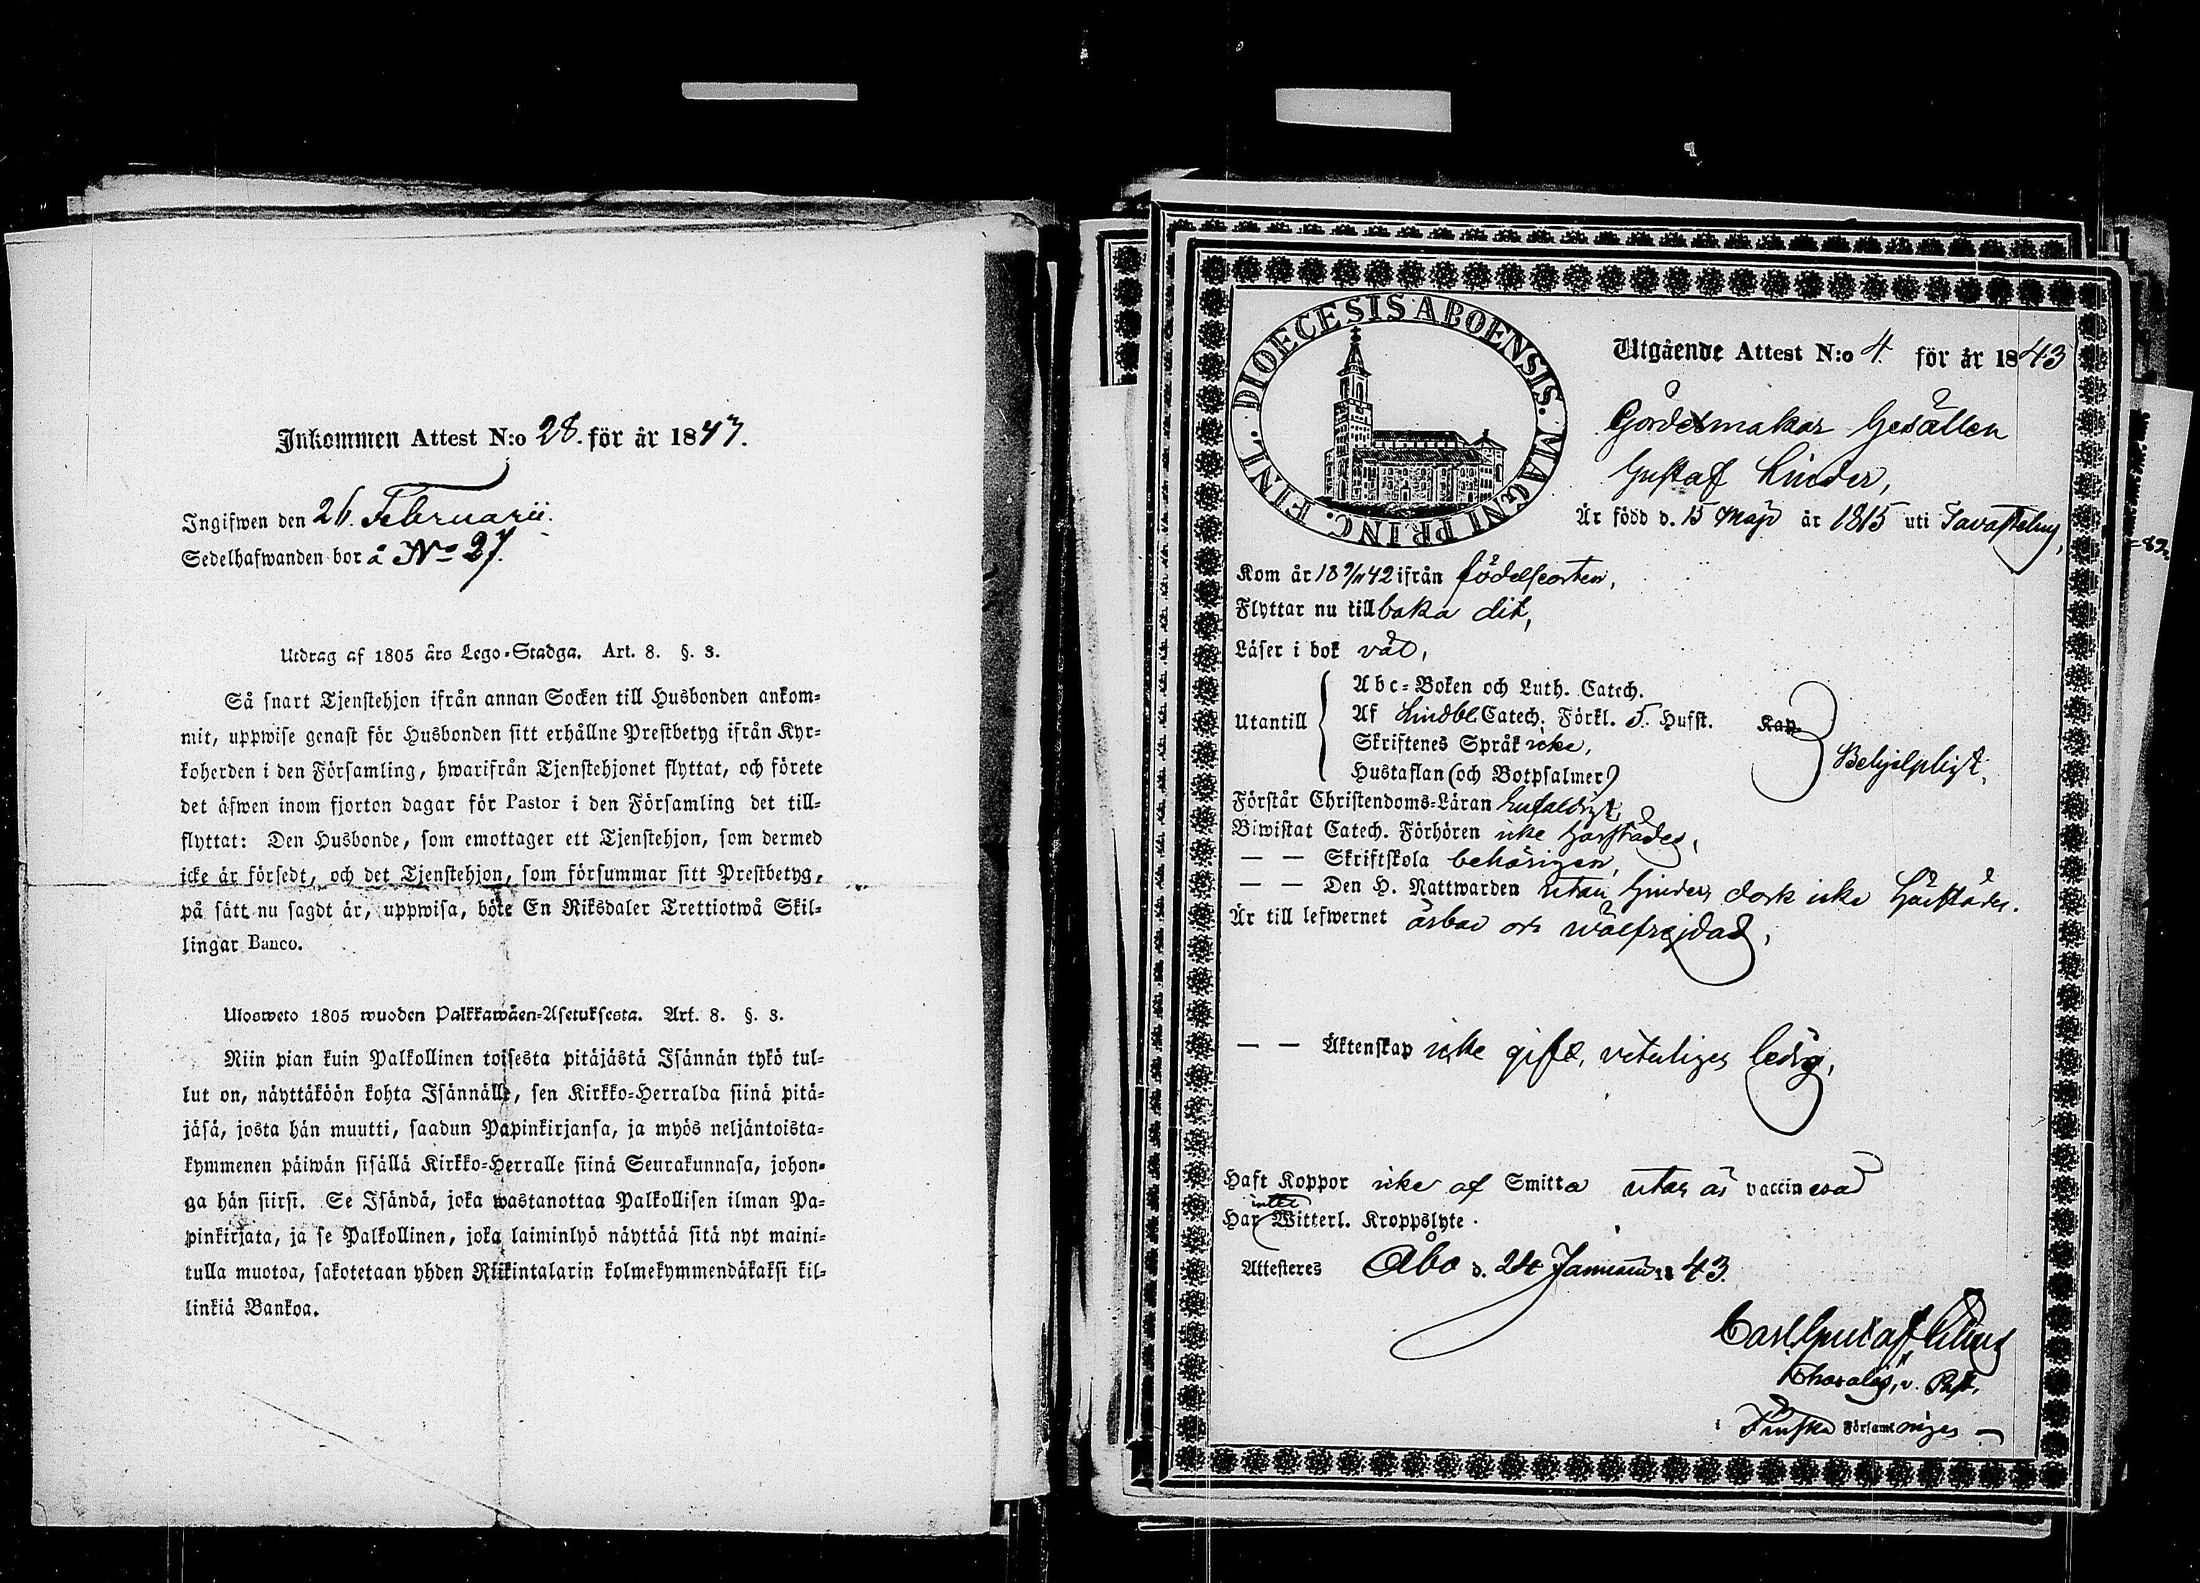 Inkommen Attest N:o 28. för år 1843.
Ingifwen den 26. Februarii.
Sedelhafwanden bor å No 27.
Utdrag af 1805 års Lego-Stadga. Art. 8. §. 3.
Så snart Tjenstehjon ifrån annan Socken till Husbonden ankom-
mit, uppwise genast för Husbonden sitt erhållne Prestbetyg ifrån Kyr-
koherden i den Församling, hwarifrån Tjenstehjonet flyttat, och förete
det äfwen inom fjorton dagar för Pastor i den Församling det till-
flyttat: Den Husbonde, som emottager ett Tjenstehjon, som dermed
icke är försedt, och det Tjenstehjon, som försummar sitt Prestbetyg,
på sätt nu sagdt är, uppwisa, böte En Riksdaler Trettiotwå Skil-
lingar Banco.
Uloswето 1805 wuoden Palkkawäen-Asetuksesta. Art. 8. §. 3.
Niin pian kuin Palkollinen toisesta pitäjästä Isännän tykö tul-
lut on, näyttäköön kohta Isännälle, sen Kirkko-Herralda siinä pitä-
jäsä, josta hän muutti, saadun Papinkirjansa, ja myös neljäntoista-
kymmenen päiwän sisällä Kirkko-Herralle siinä Seurakunnasa, johon-
ga hän siirsi. Se Isändä, joka wastanottaa Palkollisen ilman Pa-
pinkirjata, ja se Palkollinen, joka laiminlyö näyttää sitä nyt maini-
tulla muotoa, sakotetaan yhden Riikintalarin kolmekymmendäkaksi kil-
linkiä Bankoa.
DIOECESIS ABOENSIS. MAGNI PRINC. FINL.
Utgående Attest N:o 4. för år 1843
Gördelmakar Gesällen
Gustaf Linder,
Är född d. 15 Maji år 1815 uti Tavastehus,
Kom år 18 9/11 42 ifrån födelseorten,
Flyttar nu till baka dit,
Läser i bok väl,
Utantill
Abc-Boken och Luth. Catech.
Af Lindbl. Catech. Förkl. 5. Hufst. Kap.
Skriftenes Språk icke,
Hustaflan (och Botpsalmer)
Behjelpligt,
Förstår Christendoms-Läran Enfaldigt,
Biwistat Catech. Förhören icke härstädes,
— — Skriftskola behörigen,
— — Den H. Nattwarden utan hinder, dock icke härstädes.
Är till lefwernet ärbar och wälfrejdad,
— — Äktenskap icke gift, veterligen ledig,
Haft Koppor icke af Smitta utan är vaccinerad
intet
Har Witterl. Kroppslyte.
Attesteres Åbo d. 24 Januarii 1843.
Carl Gustaf
i Finska Församlingen